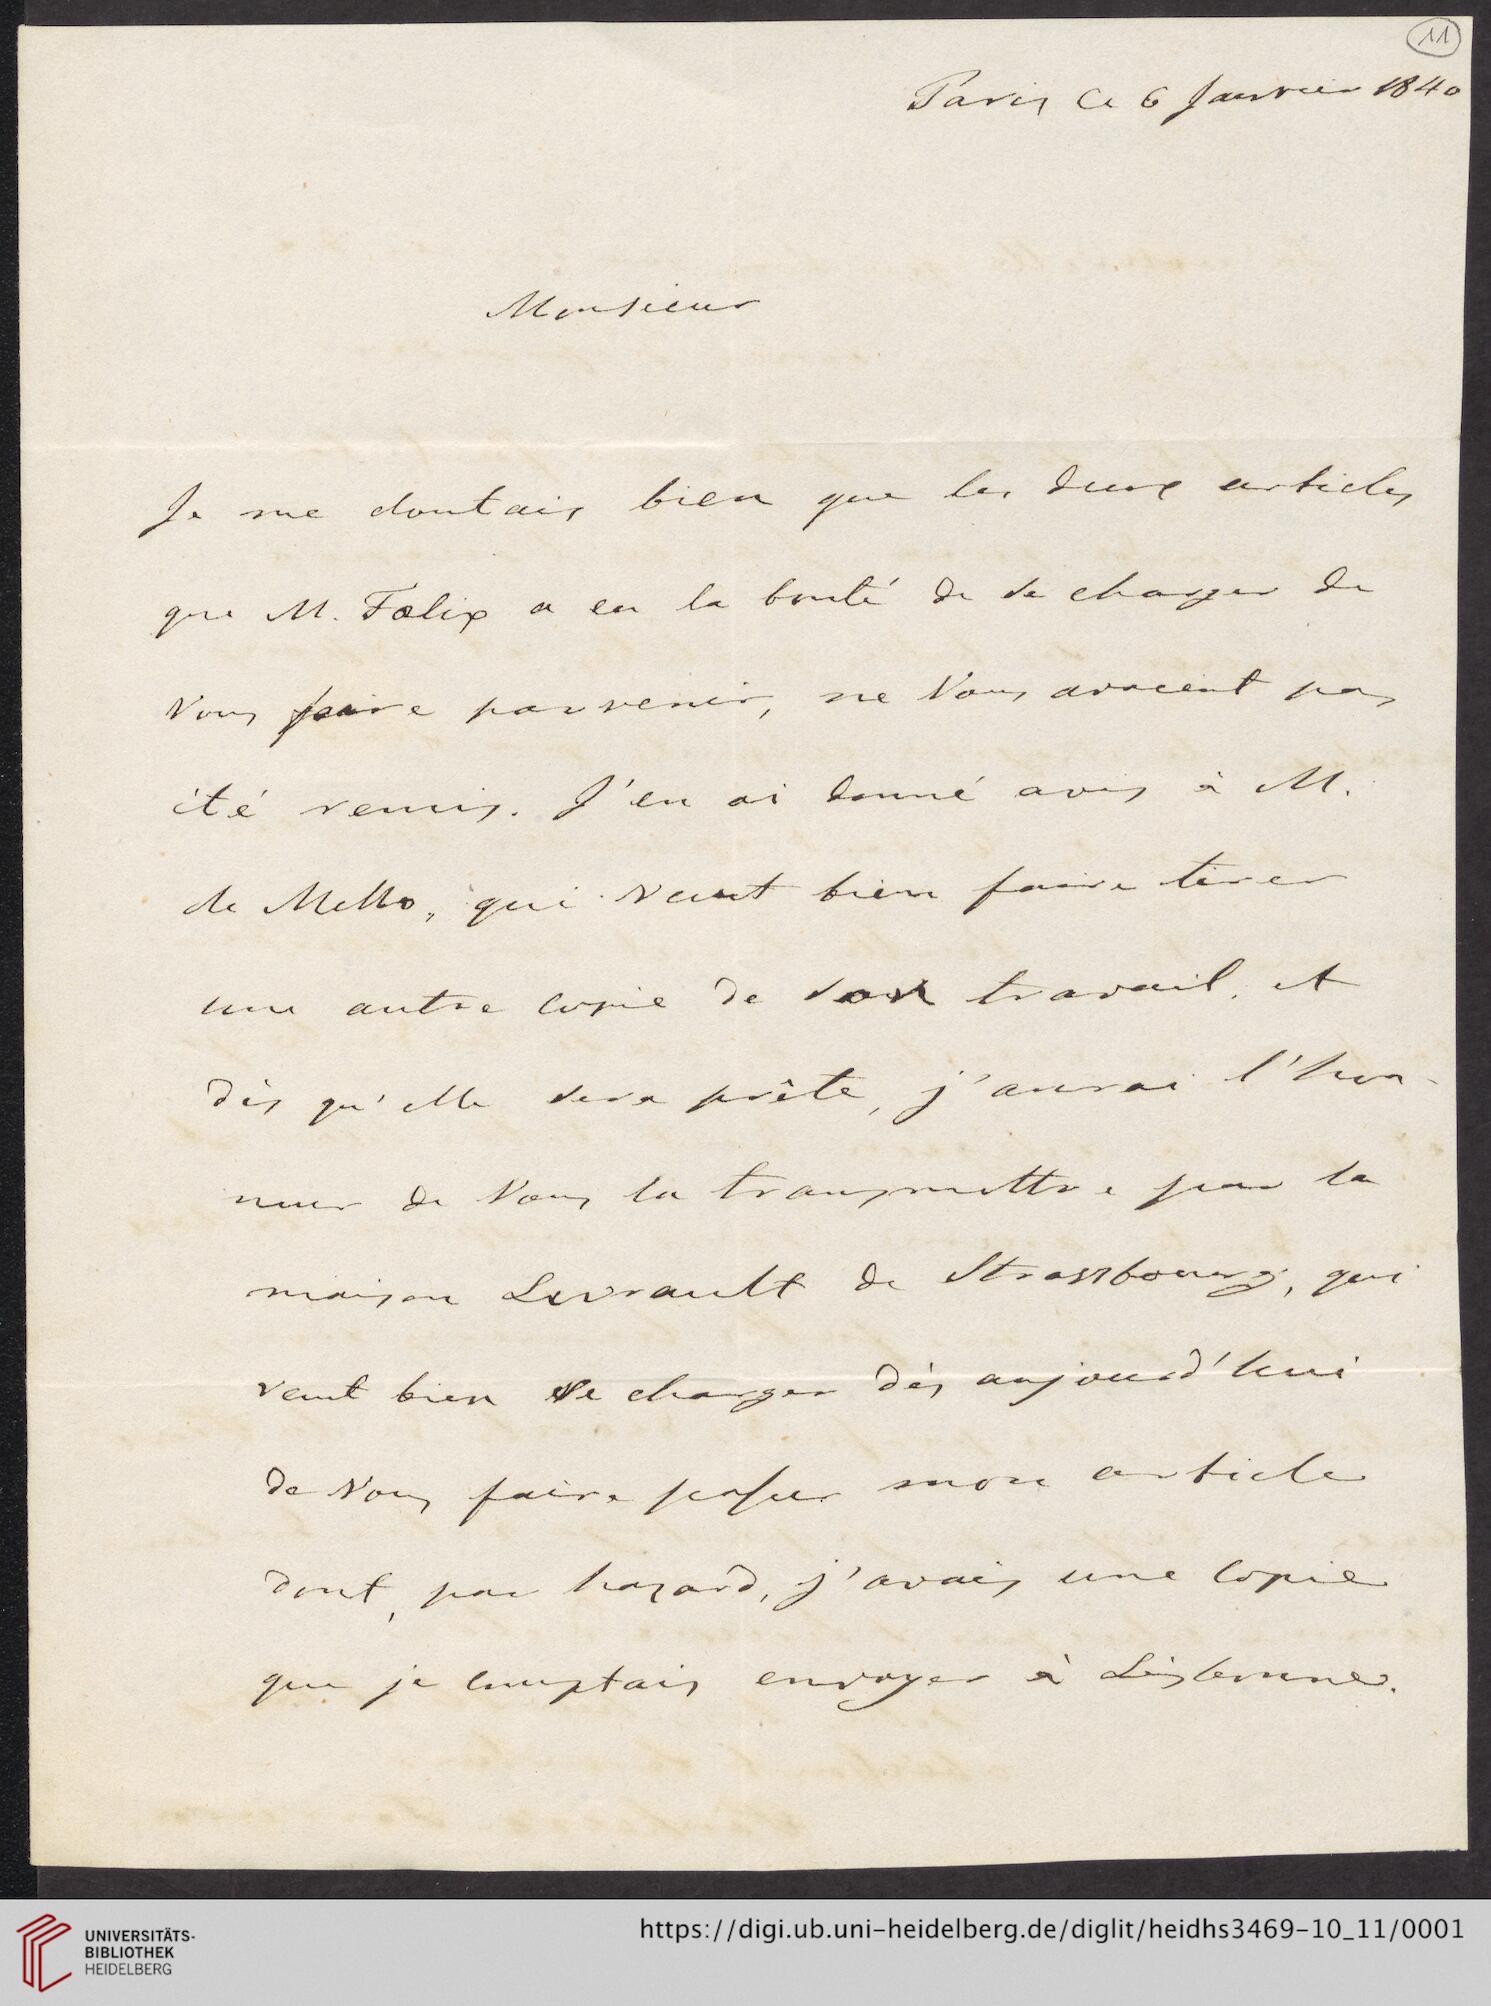 11
Paris ce 6 Janvier 1840
Monsieur
Je me doutais bien que les deux articles
que M. Fœlix a eu la bonté de se charger de
Vous faire parvenir, ne Vous avoient pas
été remis. J'en ai donné avis à M.
de Mello, qui veut bien faire tirer
une autre copie de son travail, et
dès qu'elle sera prête, j'aurai l'hon-
neur de Vous la transmettre par la
maison Levrault de Strassbourg, qui
veut bien se charger dès aujourd'hui
de Vous faire passer mon article
dont, par hazard, j'avais une copie
que je comptais envoyer à Lisbonne.
UNIVERSITÄTS-
BIBLIOTHEK
HEIDELBERG
https://digi.ub.uni-heidelberg.de/diglit/heidhs3469-10_11/0001